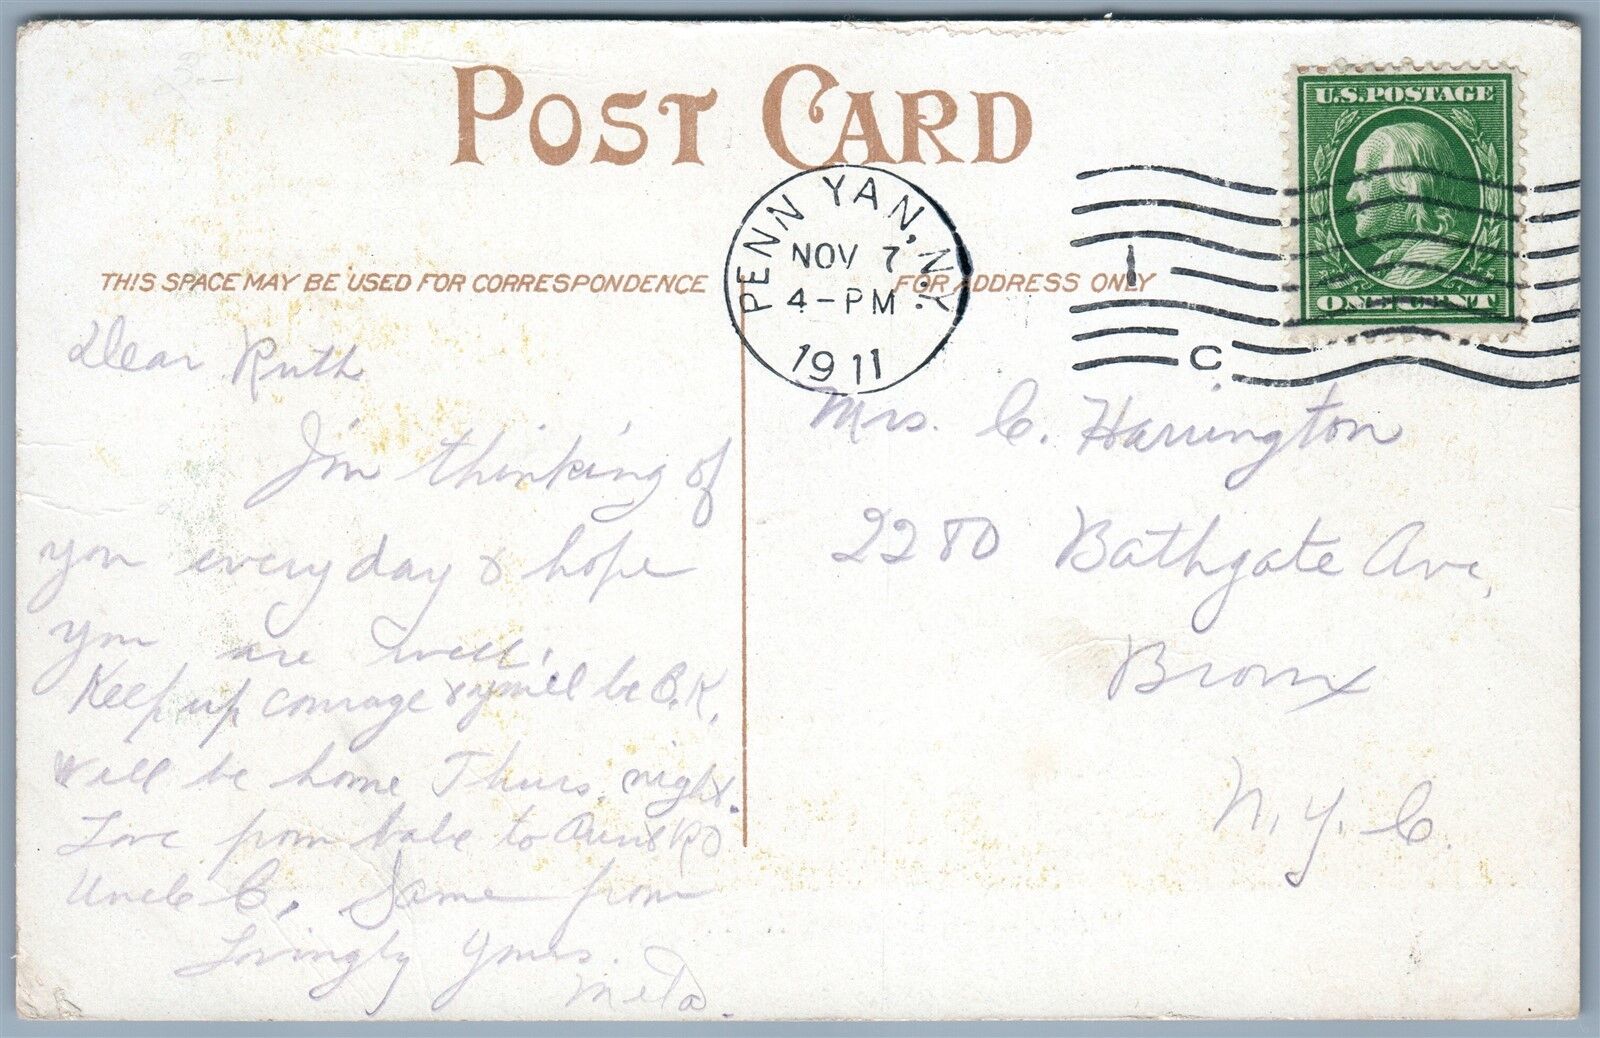 POST CARD
U.S. POSTAGE
ONE CENT
PENN YAN, N.Y.
NOV 7
4-PM
1911
1
C
THIS SPACE MAY BE USED FOR CORRESPONDENCE
FOR ADDRESS ONLY
Dear Ruth
I'm thinking of
you everyday & hope
you are well.
Keep up courage & you'll be O.K.
Will be home Thurs. night.
Love from babe to Aunt R &
Uncle C. Same from
Lovingly Yours.
Meta.
Mrs. C. Harrington
2280 Bathgate Ave,
Bronx
N.Y.C.